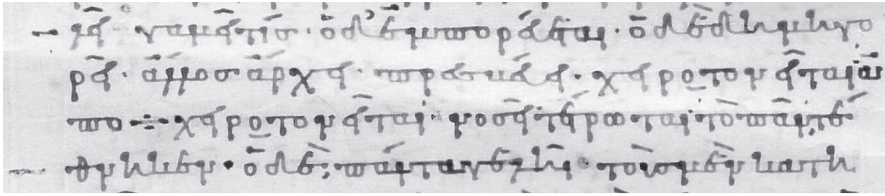 γαμεῖ τίς· ὁ δ' ἐμπορεύεται· ὁ δὲ δημηγο
ρεῖ· ἄλλος ἄρχει· πρεσβεύει· χειροτονεῖται· ἀ
πο÷χειροτονεῖται· νοσεῖ· τέρωται τὸ πᾶν, τέ
θνηκεν· ὁ δὲ, πάντα γελῆι· τοὺς μὲν κατη